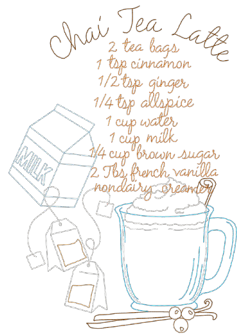 Chai Tea Latte
2 tea bags
1 tsp cinnamon
1/2 tsp ginger
1/4 tsp allspice
1 cup water
1 cup milk
1/4 cup brown sugar
2 Tbs french vanilla
nondairy creamer
MILK